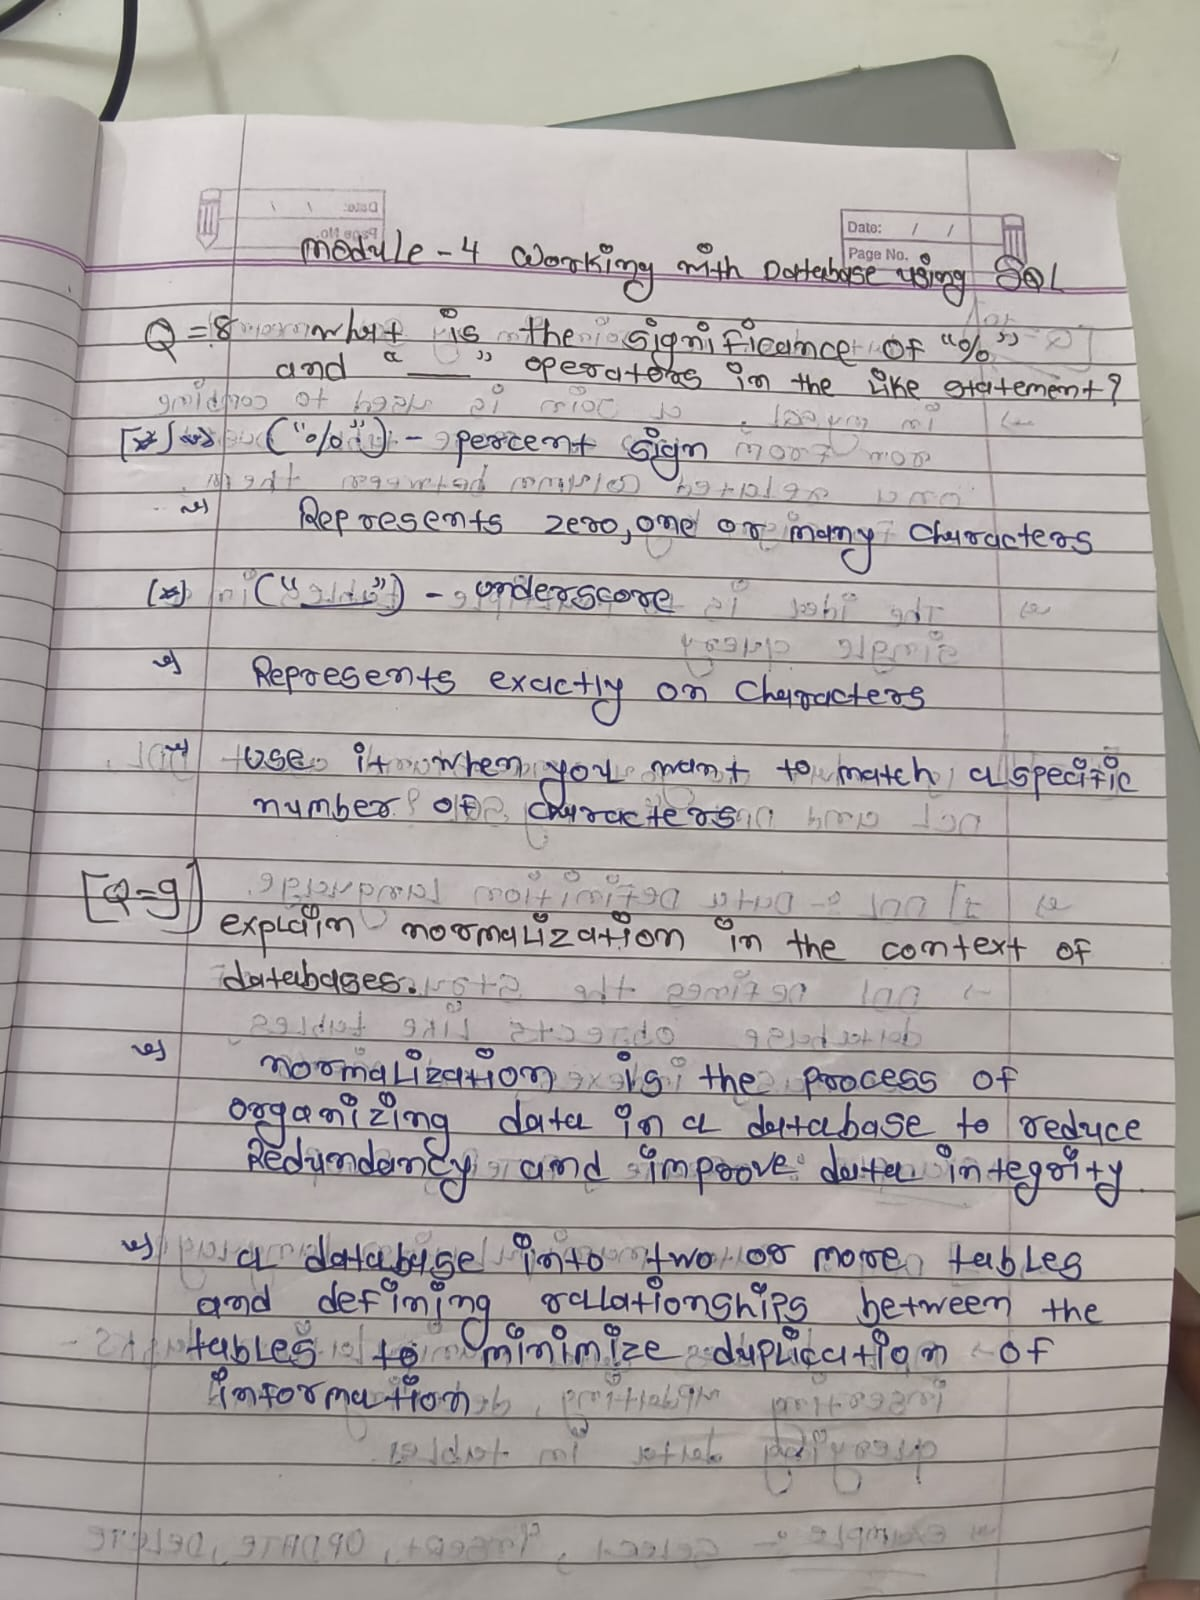 Date: / /
Page No.
Module - 4 Working with Database using SQL
Q = 8 what is the significance of "%"
and "___" operators in the like statement?
[*] ("%") - percent sign
Represents zero, one or many characters
[*] ("___") - underscore
Represents exactly on characters
use it when you want to match a specific
number of characters
[Q=9]
explain normalization in the context of
databases.
normalization is the process of
organizing data in a database to reduce
Redundancy and improve data integrity.
a database into two or more tables
and defining rallationships between the
tables to minimize duplication of
information